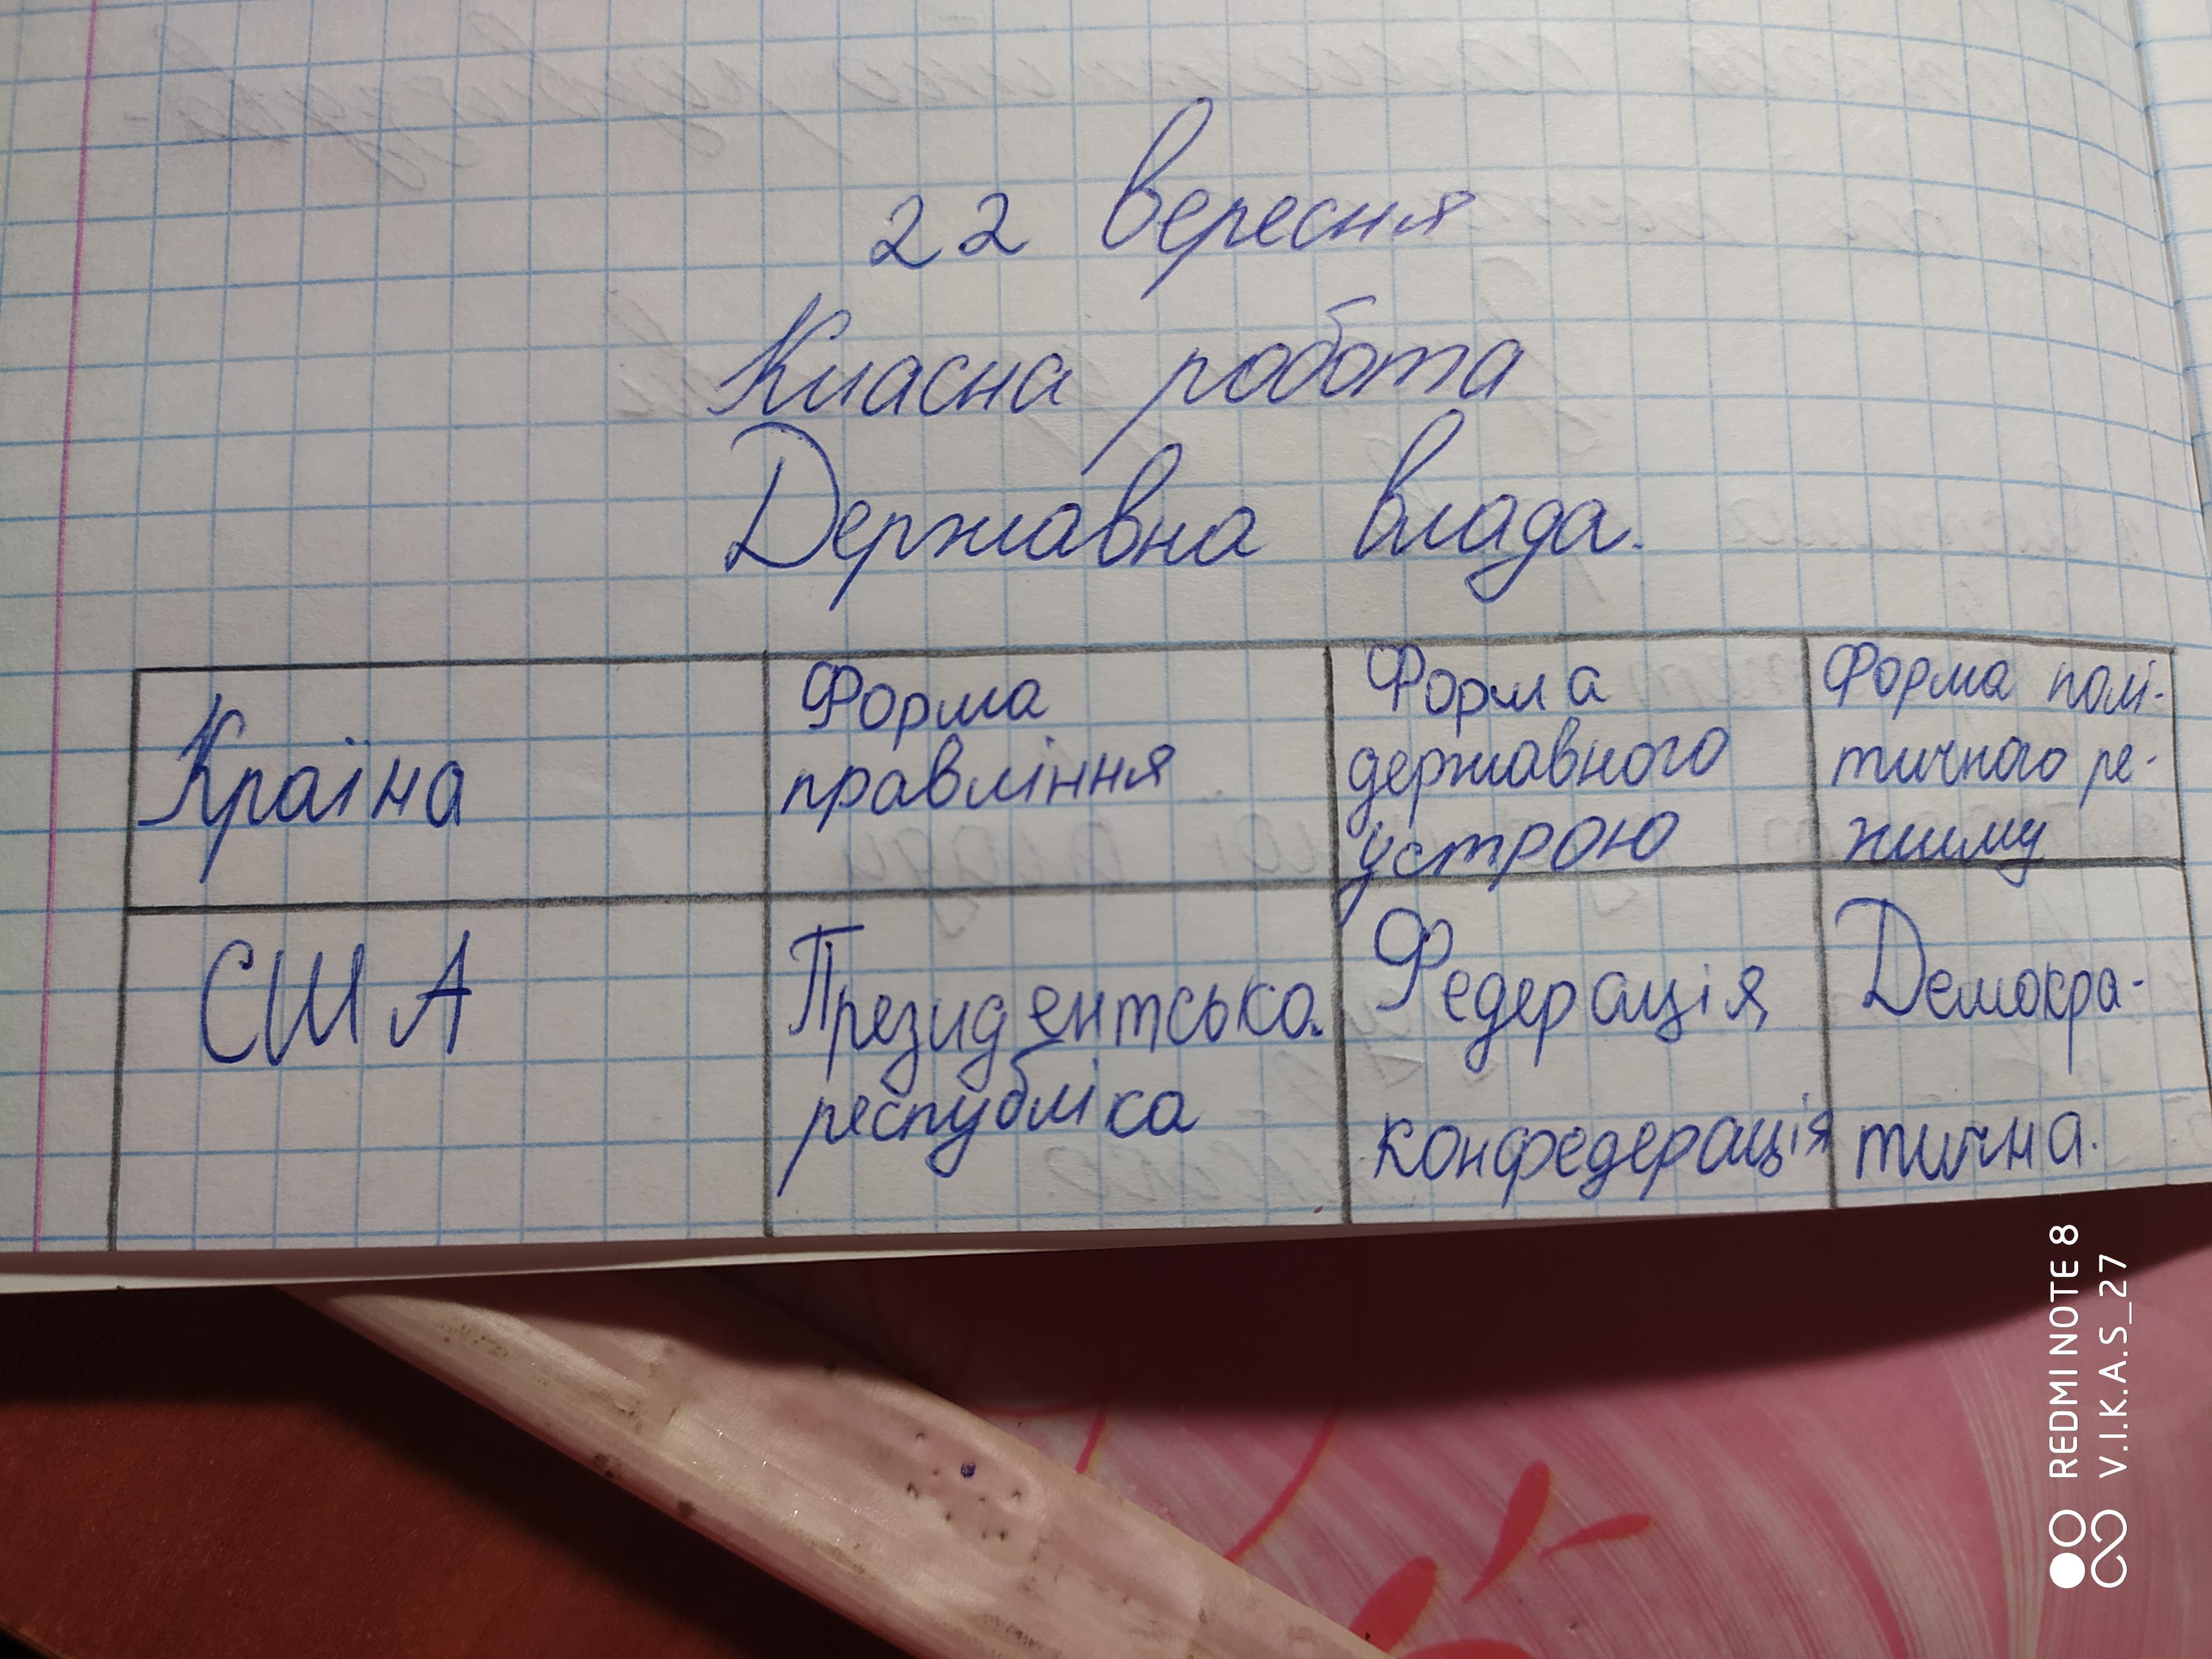 22 вересня
Класна робота
Державна влада.
Країна
Форма
правління
Форма
державного
устрою
Форма полі-
тичного ре-
жиму
США
Президентська.
республіка
Федерація
конфедерація
Демокра-
тична.
REDMI NOTE 8
V.I.K.A.S_27